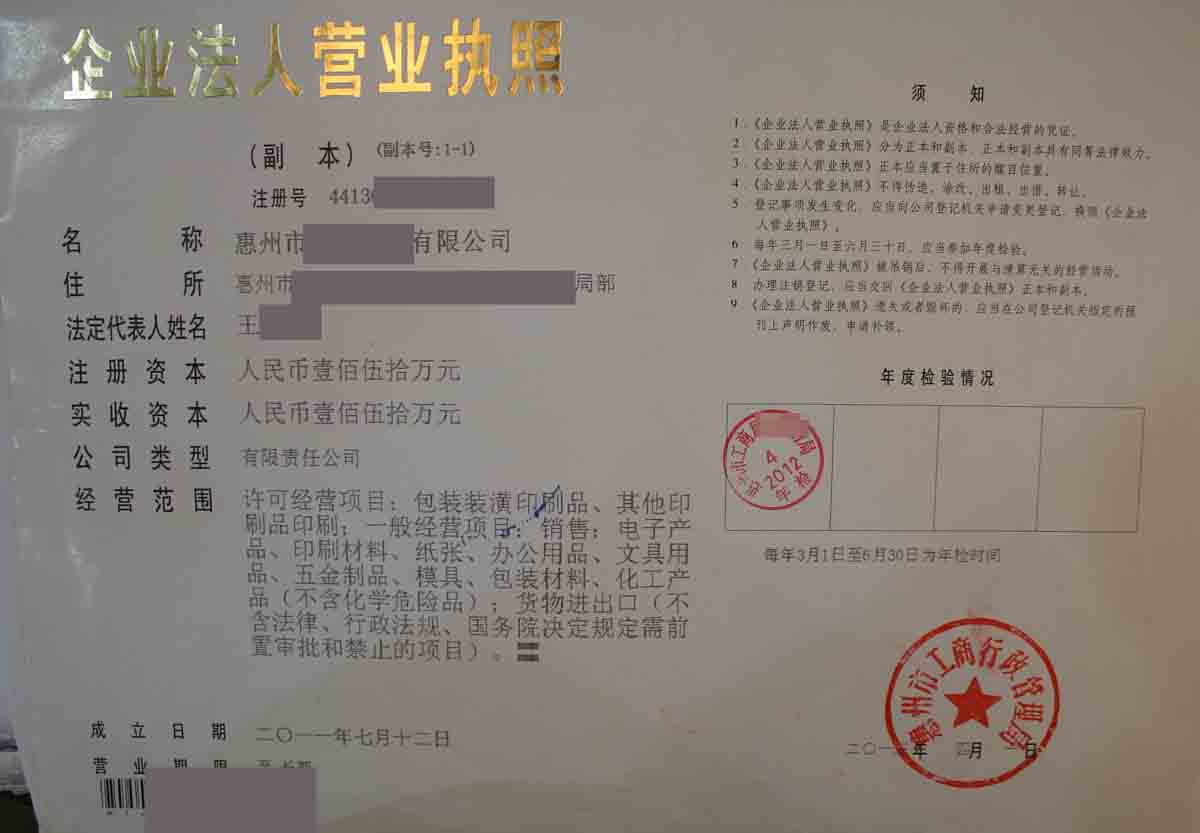 企业法人营业执照
（副 本）（副本号:1-1）
注册号 4413
名 称 惠州市 有限公司
住 所 惠州市 局部
法定代表人姓名 王
注册资本 人民币壹佰伍拾万元
实收资本 人民币壹佰伍拾万元
公司类型 有限责任公司
经营范围 许可经营项目：包装装潢印刷品、其他印
刷品印刷；一般经营项目：销售：电子产
品、印刷材料、纸张、办公用品、文具用
品、五金制品、模具、包装材料、化工产
品（不含化学危险品）；货物进出口（不
含法律、行政法规、国务院决定规定需前
置审批和禁止的项目）。
成立日期 二〇一一年七月十二日
营业期限 至长期
须 知
1.《企业法人营业执照》是企业法人资格和合法经营的凭证。
2.《企业法人营业执照》分为正本和副本，正本和副本具有同等法律效力。
3.《企业法人营业执照》正本应当置于住所的醒目位置。
4.《企业法人营业执照》不得伪造、涂改、出租、出借、转让。
5 登记事项发生变化，应当向公司登记机关申请变更登记，换领《企业法
人营业执照》。
6 每年三月一日至六月三十日，应当参加年度检验。
7 《企业法人营业执照》被吊销后，不得开展与清算无关的经营活动。
8 办理注销登记，应当交回《企业法人营业执照》正本和副本。
9 《企业法人营业执照》遗失或者毁坏的，应当在公司登记机关指定的报
刊上声明作废，申请补领。
年度检验情况
市工商局 局
4
2012
年检
每年3月1日至6月30日为年检时间
惠州市工商行政管理局
二〇一 年 四月 日